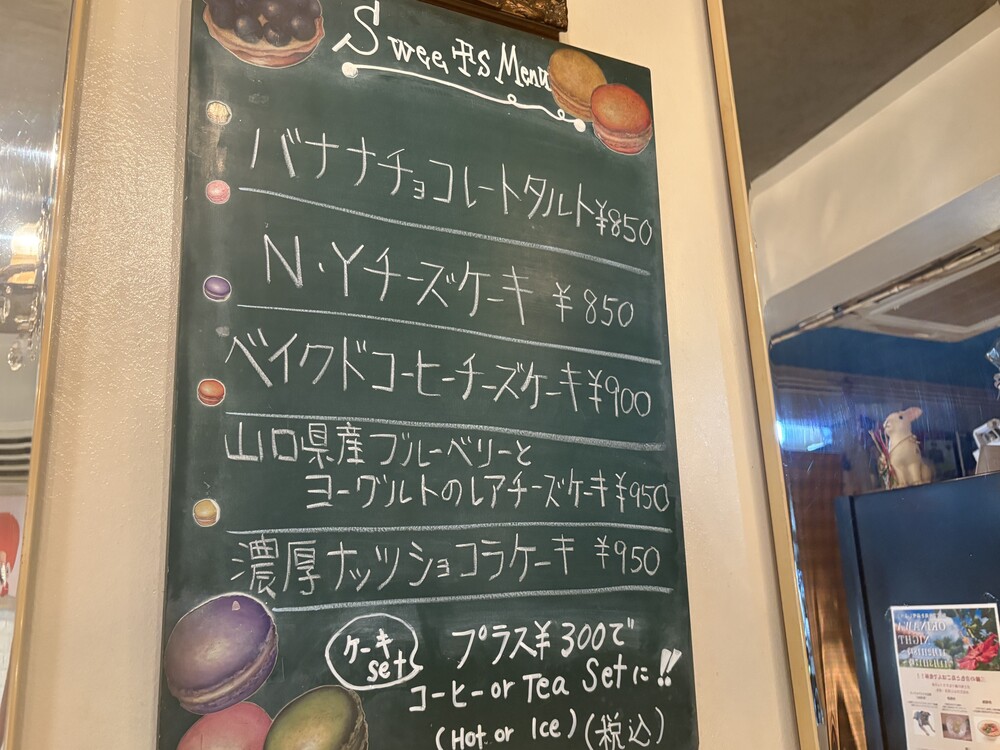 Sweets Menu
バナナチョコレートタルト¥850
N・Yチーズケーキ ¥850
ベイクドコーヒーチーズケーキ¥900
山口県産ブルーベリーと
ヨーグルトのレアチーズケーキ¥950
濃厚ナッツショコラケーキ ¥950
ケーキ
set
プラス¥300で
コーヒーor Tea Setに!!
(Hot or Ice)(税込)
OKINAWA
NIGHT